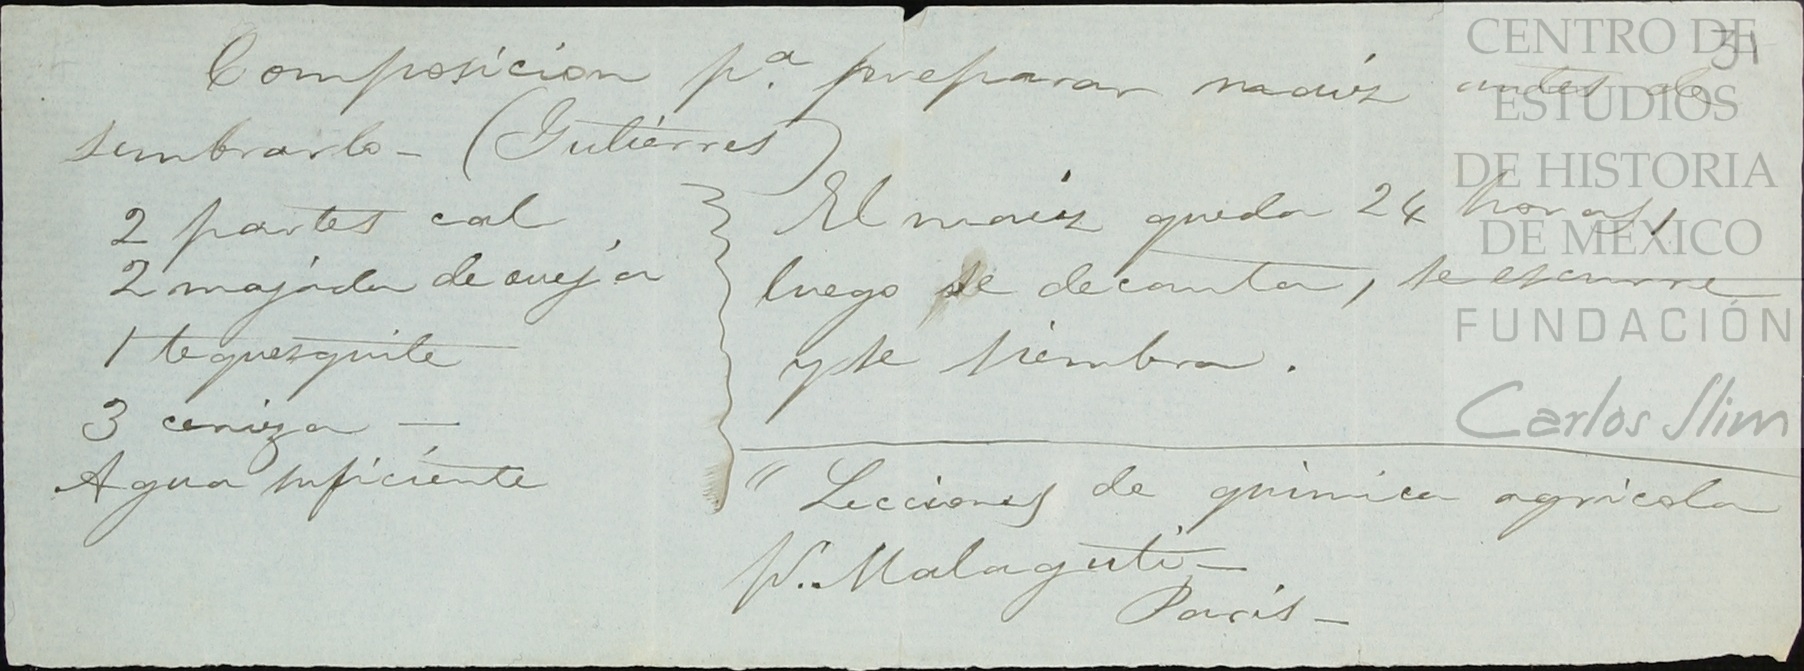 Composicion pa. preparar maiz antes de
sembrarlo - (Gutiérres)
2 partes cal
2 majada de oveja
1 tequezquite
3 ceniza —
Agua suficiente
El maiz queda 24 horas,
luego se decanta, se escurre
y se siembra.
" Lecciones de quimica agricola
p. Malaguti —
Paris —
31
CENTRO DE
ESTUDIOS
DE HISTORIA
DE MÉXICO
FUNDACIÓN
Carlos Slim